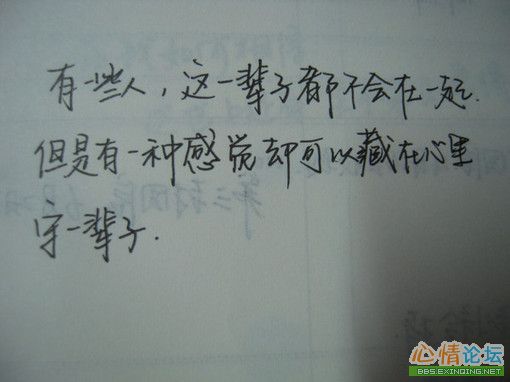 有一些人，这一辈子都不会在一起.
但是有一种感觉却可以藏在心里
守一辈子.
心情论坛
BBS.EXINQING.NET